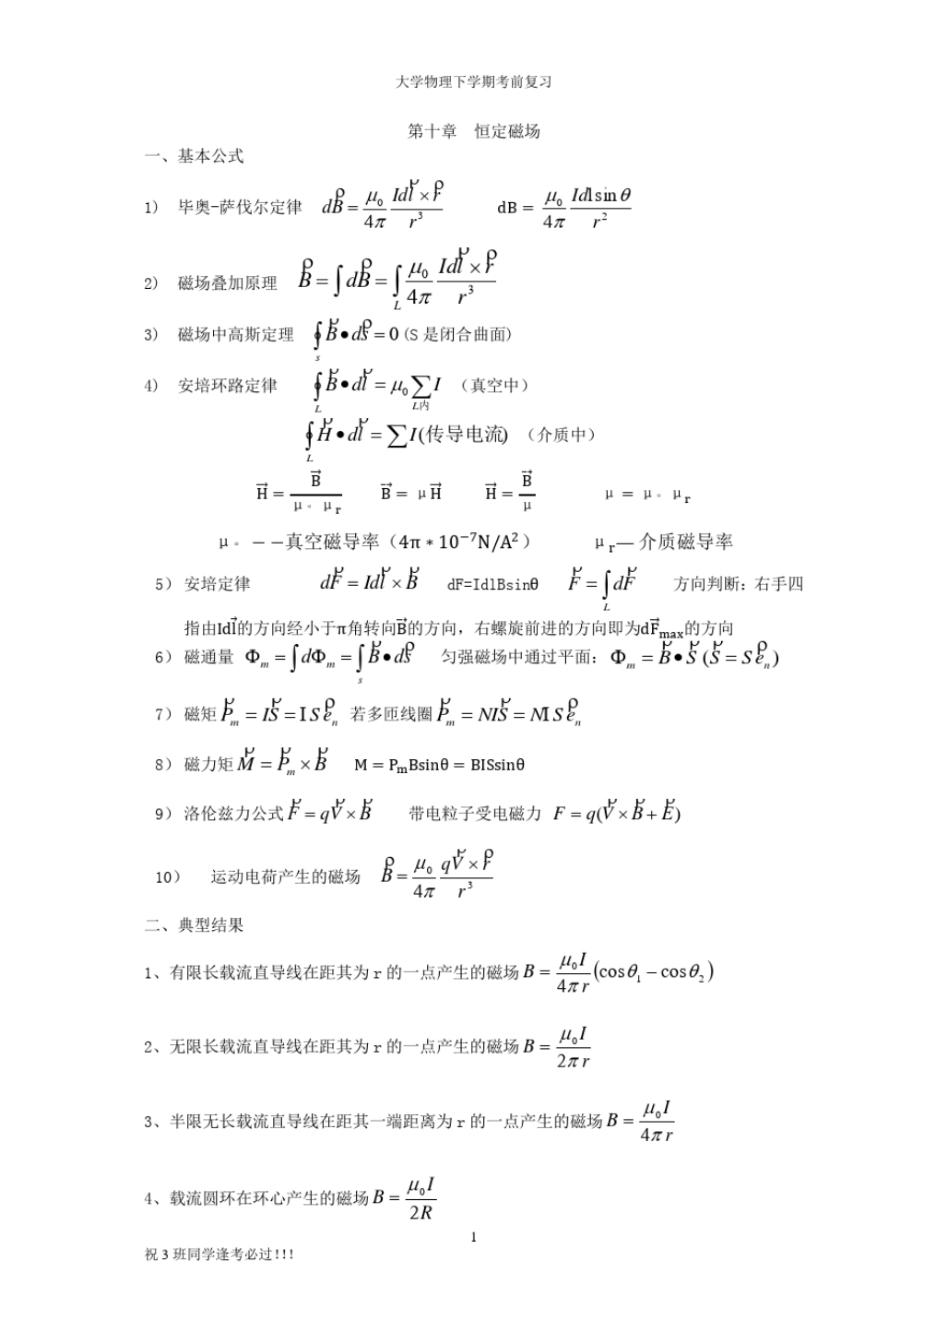 大学物理下学期考前复习
第十章 恒定磁场
一、基本公式
1) 毕奥-萨伐尔定律 $d\vec{B}=\frac{\mu_0}{4\pi}\frac{Id\vec{l}\times\vec{r}}{r^3}$ $dB=\frac{\mu_0}{4\pi}\frac{Idl\sin\theta}{r^2}$
2) 磁场叠加原理 $\vec{B}=\int d\vec{B}=\int_L\frac{\mu_0}{4\pi}\frac{Id\vec{l}\times\vec{r}}{r^3}$
3) 磁场中高斯定理 $\oint_s\vec{B}\bullet d\vec{s}=0$(S 是闭合曲面)
4) 安培环路定律 $\oint_L\vec{B}\bullet d\vec{l}=\mu_0\sum_{L内}I$ (真空中)
$\oint_L\vec{H}\bullet d\vec{l}=\sum I(传导电流)$ (介质中)
$\vec{H}=\frac{\vec{B}}{\mu_。\mu_r}$ $\vec{B}=\mu\vec{H}$ $\vec{H}=\frac{\vec{B}}{\mu}$ $\mu=\mu_。\mu_r$
μ。——真空磁导率(4π∗10⁻⁷N/A²) $\mu_r$— 介质磁导率
5) 安培定律 $d\vec{F}=Id\vec{l}\times\vec{B}$ dF=IdlBsinθ $\vec{F}=\int_L d\vec{F}$ 方向判断: 右手四
指由$Id\vec{l}$的方向经小于π角转向$\vec{B}$的方向, 右螺旋前进的方向即为$d\vec{F}_{max}$的方向
6) 磁通量 $\Phi_m=\int d\Phi_m=\int_s\vec{B}\bullet d\vec{s}$ 匀强磁场中通过平面: $\Phi_m=\vec{B}\bullet\vec{S}(\vec{S}=S\vec{e}_n)$
7) 磁矩 $\vec{P}_m=I\vec{S}=IS\vec{e}_n$ 若多匝线圈 $\vec{P}_m=NI\vec{S}=NIS\vec{e}_n$
8) 磁力矩 $\vec{M}=\vec{P}_m\times\vec{B}$ $M=P_mB\sin\theta=BIS\sin\theta$
9) 洛伦兹力公式 $\vec{F}=q\vec{V}\times\vec{B}$ 带电粒子受电磁力 $F=q(\vec{V}\times\vec{B}+\vec{E})$
10) 运动电荷产生的磁场 $\vec{B}=\frac{\mu_0}{4\pi}\frac{q\vec{V}\times\vec{r}}{r^3}$
二、典型结果
1、有限长载流直导线在距其为 r 的一点产生的磁场 $B=\frac{\mu_0I}{4\pi r}(\cos\theta_1-\cos\theta_2)$
2、无限长载流直导线在距其为 r 的一点产生的磁场 $B=\frac{\mu_0I}{2\pi r}$
3、半限无长载流直导线在距其一端距离为 r 的一点产生的磁场 $B=\frac{\mu_0I}{4\pi r}$
4、载流圆环在环心产生的磁场 $B=\frac{\mu_0I}{2R}$
1
祝 3 班同学逢考必过!!!